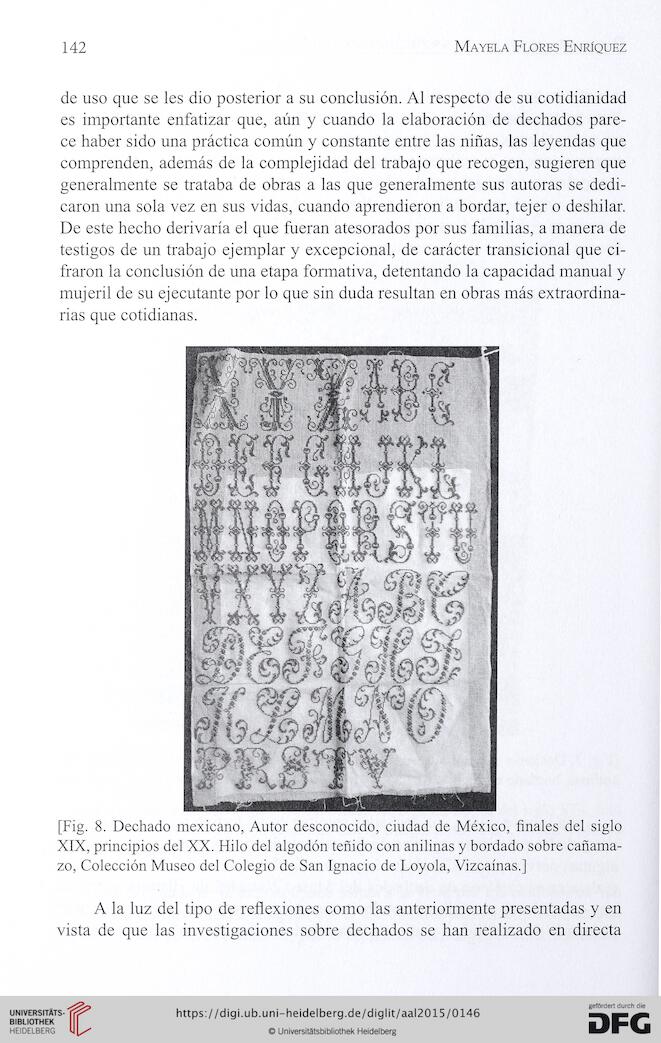 142 MAYELA FLORES ENRÍQUEZ
de uso que se les dio posterior a su conclusión. Al respecto de su cotidianidad
es importante enfatizar que, aún y cuando la elaboración de dechados pare-
ce haber sido una práctica común y constante entre las niñas, las leyendas que
comprenden, además de la complejidad del trabajo que recogen, sugieren que
generalmente se trataba de obras a las que generalmente sus autoras se dedi-
caron una sola vez en sus vidas, cuando aprendieron a bordar, tejer o deshilar.
De este hecho derivaría el que fueran atesorados por sus familias, a manera de
testigos de un trabajo ejemplar y excepcional, de carácter transicional que ci-
fraron la conclusión de una etapa formativa, detentando la capacidad manual y
mujeril de su ejecutante por lo que sin duda resultan en obras más extraordina-
rias que cotidianas.
X Y Z A B C
D E F G H I J K L
M N O P Q R S T U
V X Y Z A B C
D E F G H I J
K L M N O
P R S T V
[Fig. 8. Dechado mexicano, Autor desconocido, ciudad de México, finales del siglo
XIX, principios del XX. Hilo del algodón teñido con anilinas y bordado sobre cañama-
zo, Colección Museo del Colegio de San Ignacio de Loyola, Vizcaínas.]
A la luz del tipo de reflexiones como las anteriormente presentadas y en
vista de que las investigaciones sobre dechados se han realizado en directa
UNIVERSITÄTS-
BIBLIOTHEK
HEIDELBERG
https://digi.ub.uni-heidelberg.de/diglit/aal2015/0146
© Universitätsbibliothek Heidelberg
gefördert durch die
DFG